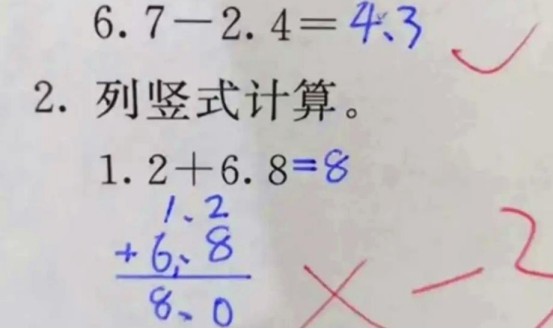 6.7－2.4＝4.3 ✓
2. 列竖式计算。
1.2＋6.8=8
1.2
+ 6.8
8.0
× －2